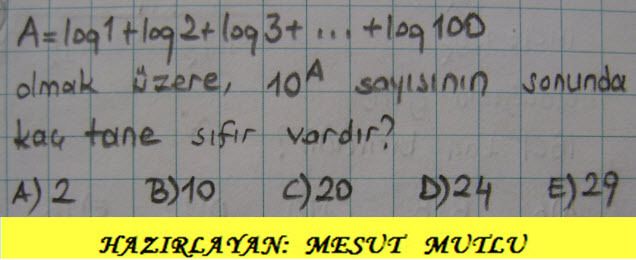 A=log1+log2+log3+...+log100
olmak üzere, 10^A sayısının sonunda
kaç tane sıfır vardır?
A) 2 B) 10 C) 20 D) 24 E) 29
HAZIRLAYAN: MESUT MUTLU